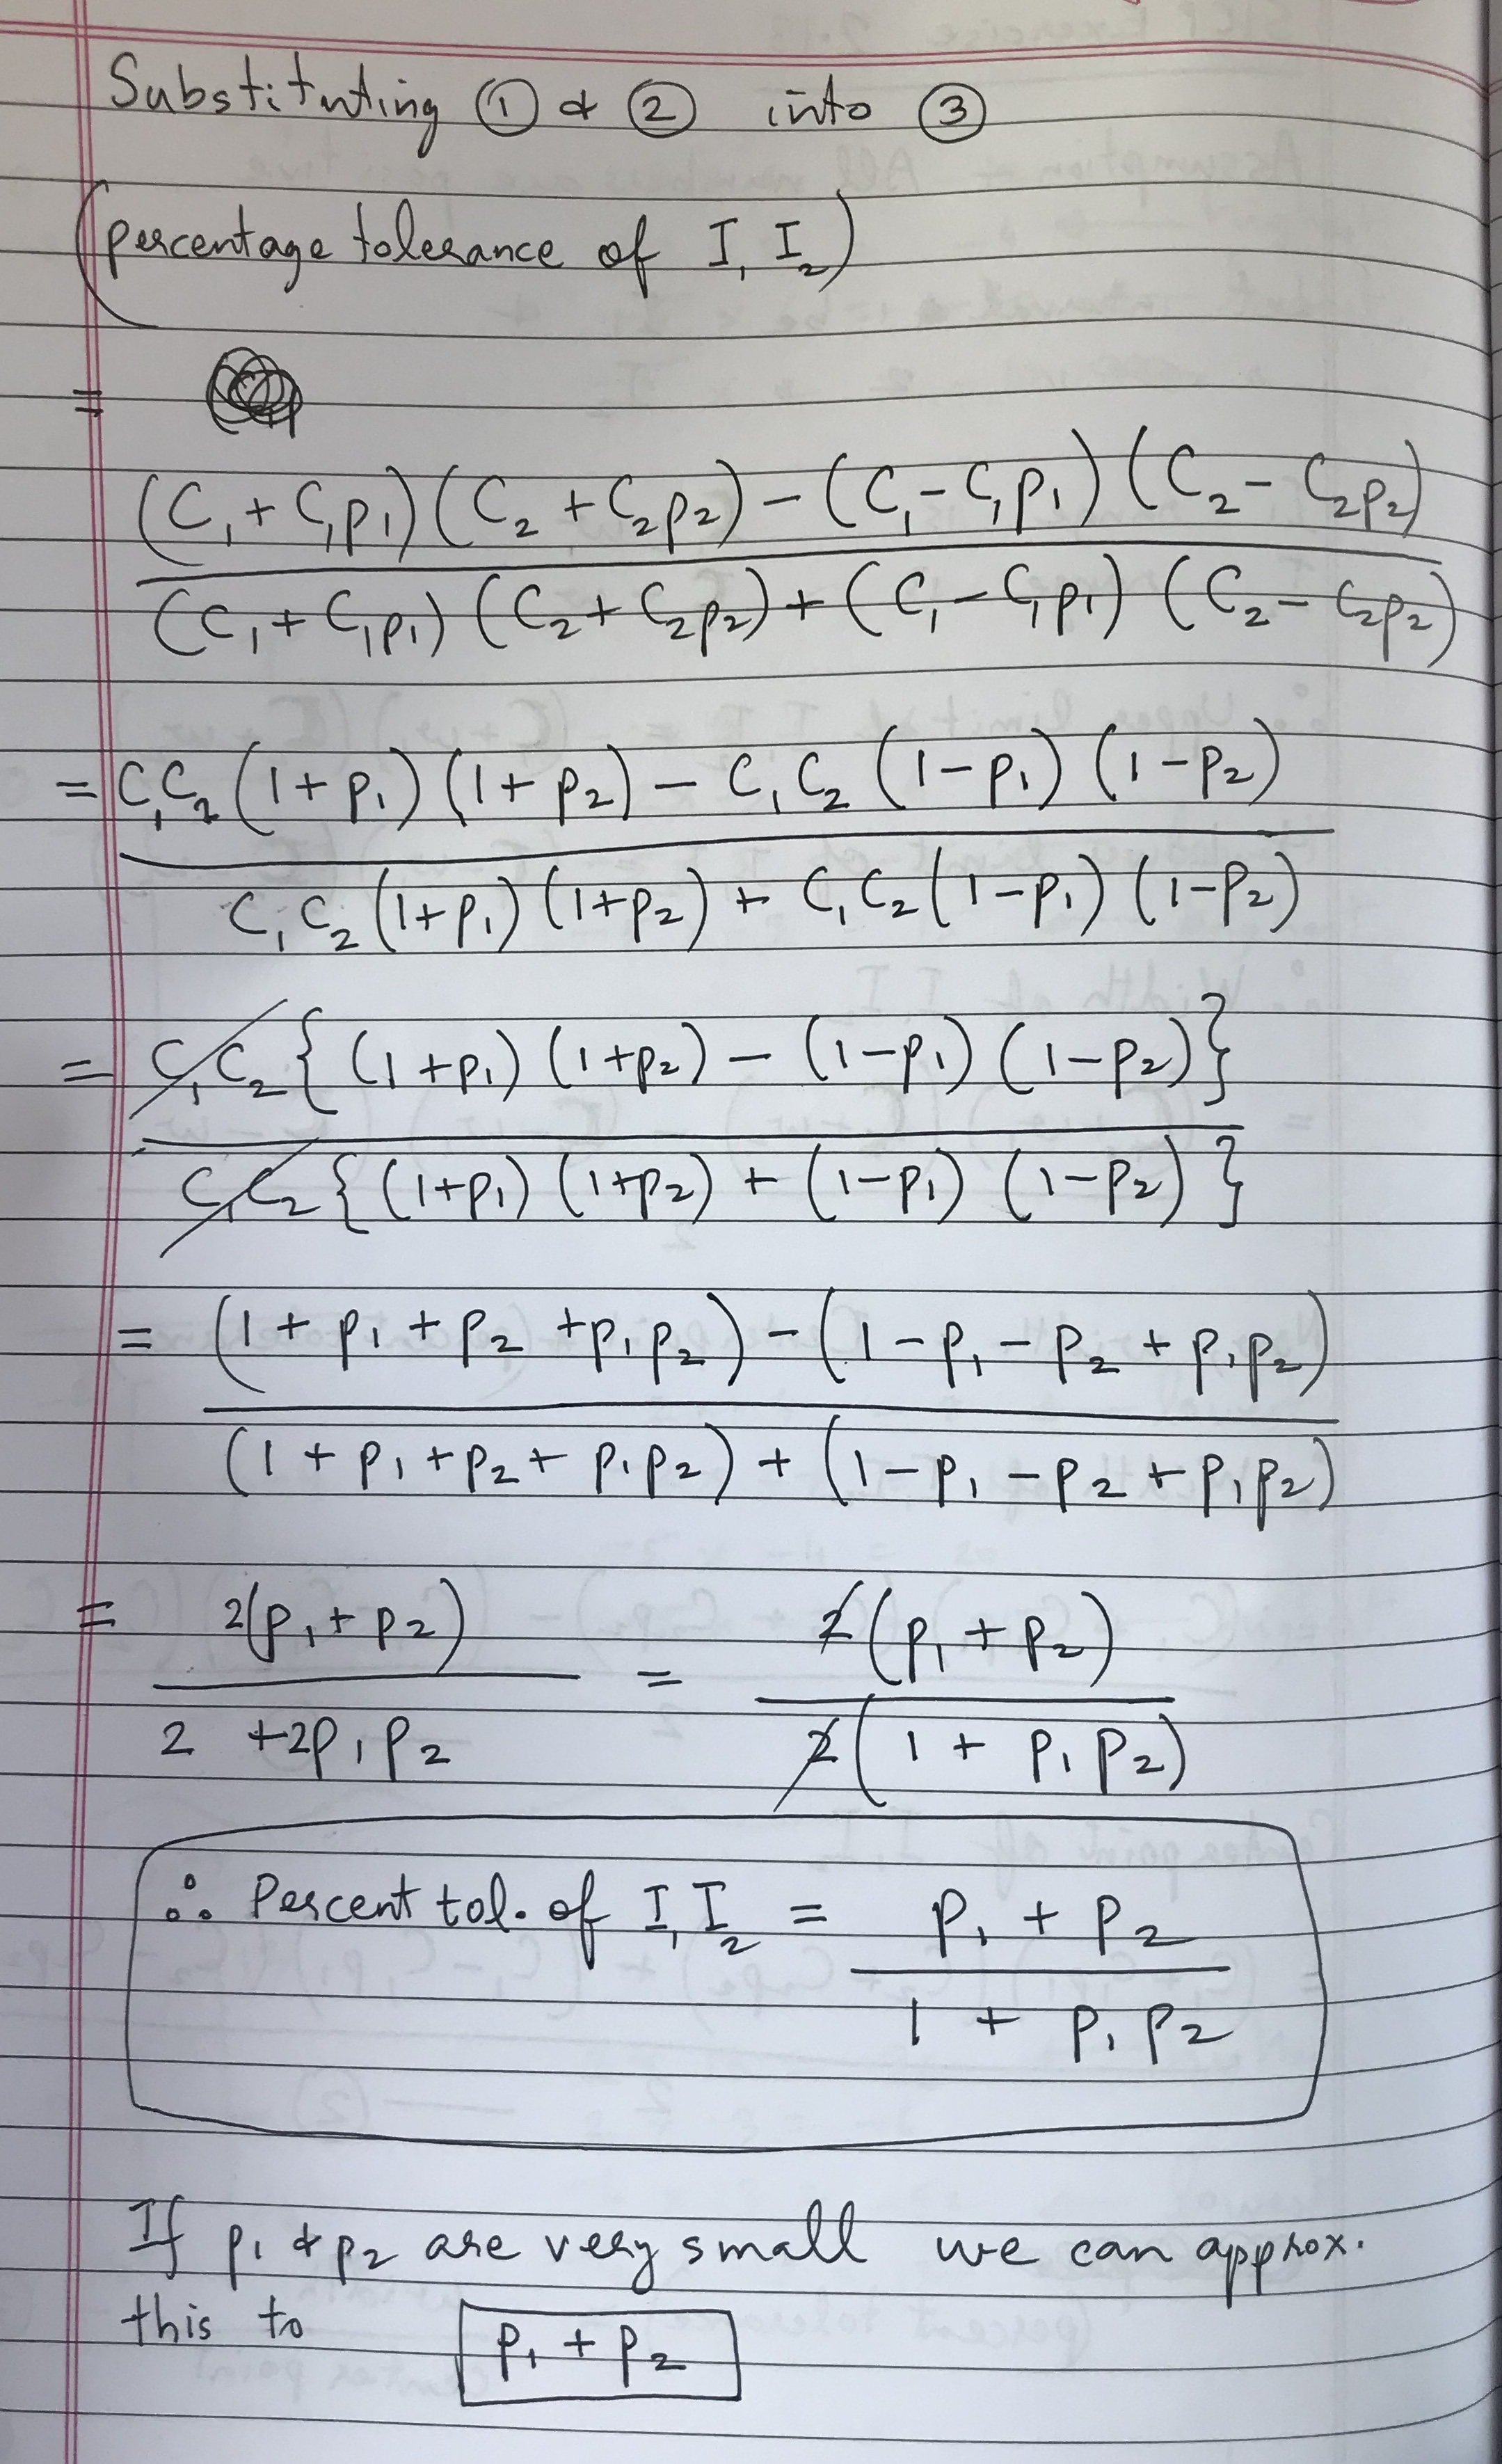 Substituting ① & ② into ③
(percentage tolerance of I₁ I₂)
=
(C₁ + C₁p₁)(C₂ + C₂p₂) - (C₁ - C₁p₁)(C₂ - C₂p₂)
(C₁ + C₁p₁)(C₂ + C₂p₂) + (C₁ - C₁p₁)(C₂ - C₂p₂)
= C₁C₂(1 + p₁)(1 + p₂) - C₁C₂(1 - p₁)(1 - p₂)
C₁C₂(1+p₁)(1+p₂) + C₁C₂(1-p₁)(1-p₂)
= C₁C₂{(1+p₁)(1+p₂) - (1-p₁)(1-p₂)}
C₁C₂{(1+p₁)(1+p₂) + (1-p₁)(1-p₂)}
= (1 + p₁ + p₂ + p₁p₂) - (1 - p₁ - p₂ + p₁p₂)
(1 + p₁ + p₂ + p₁p₂) + (1 - p₁ - p₂ + p₁p₂)
= 2(p₁ + p₂) = 2(p₁ + p₂)
2 + 2p₁p₂ 2(1 + p₁p₂)
∴ Percent tol. of I₁I₂ = p₁ + p₂
1 + p₁p₂
If p₁ & p₂ are very small we can approx.
this to p₁ + p₂